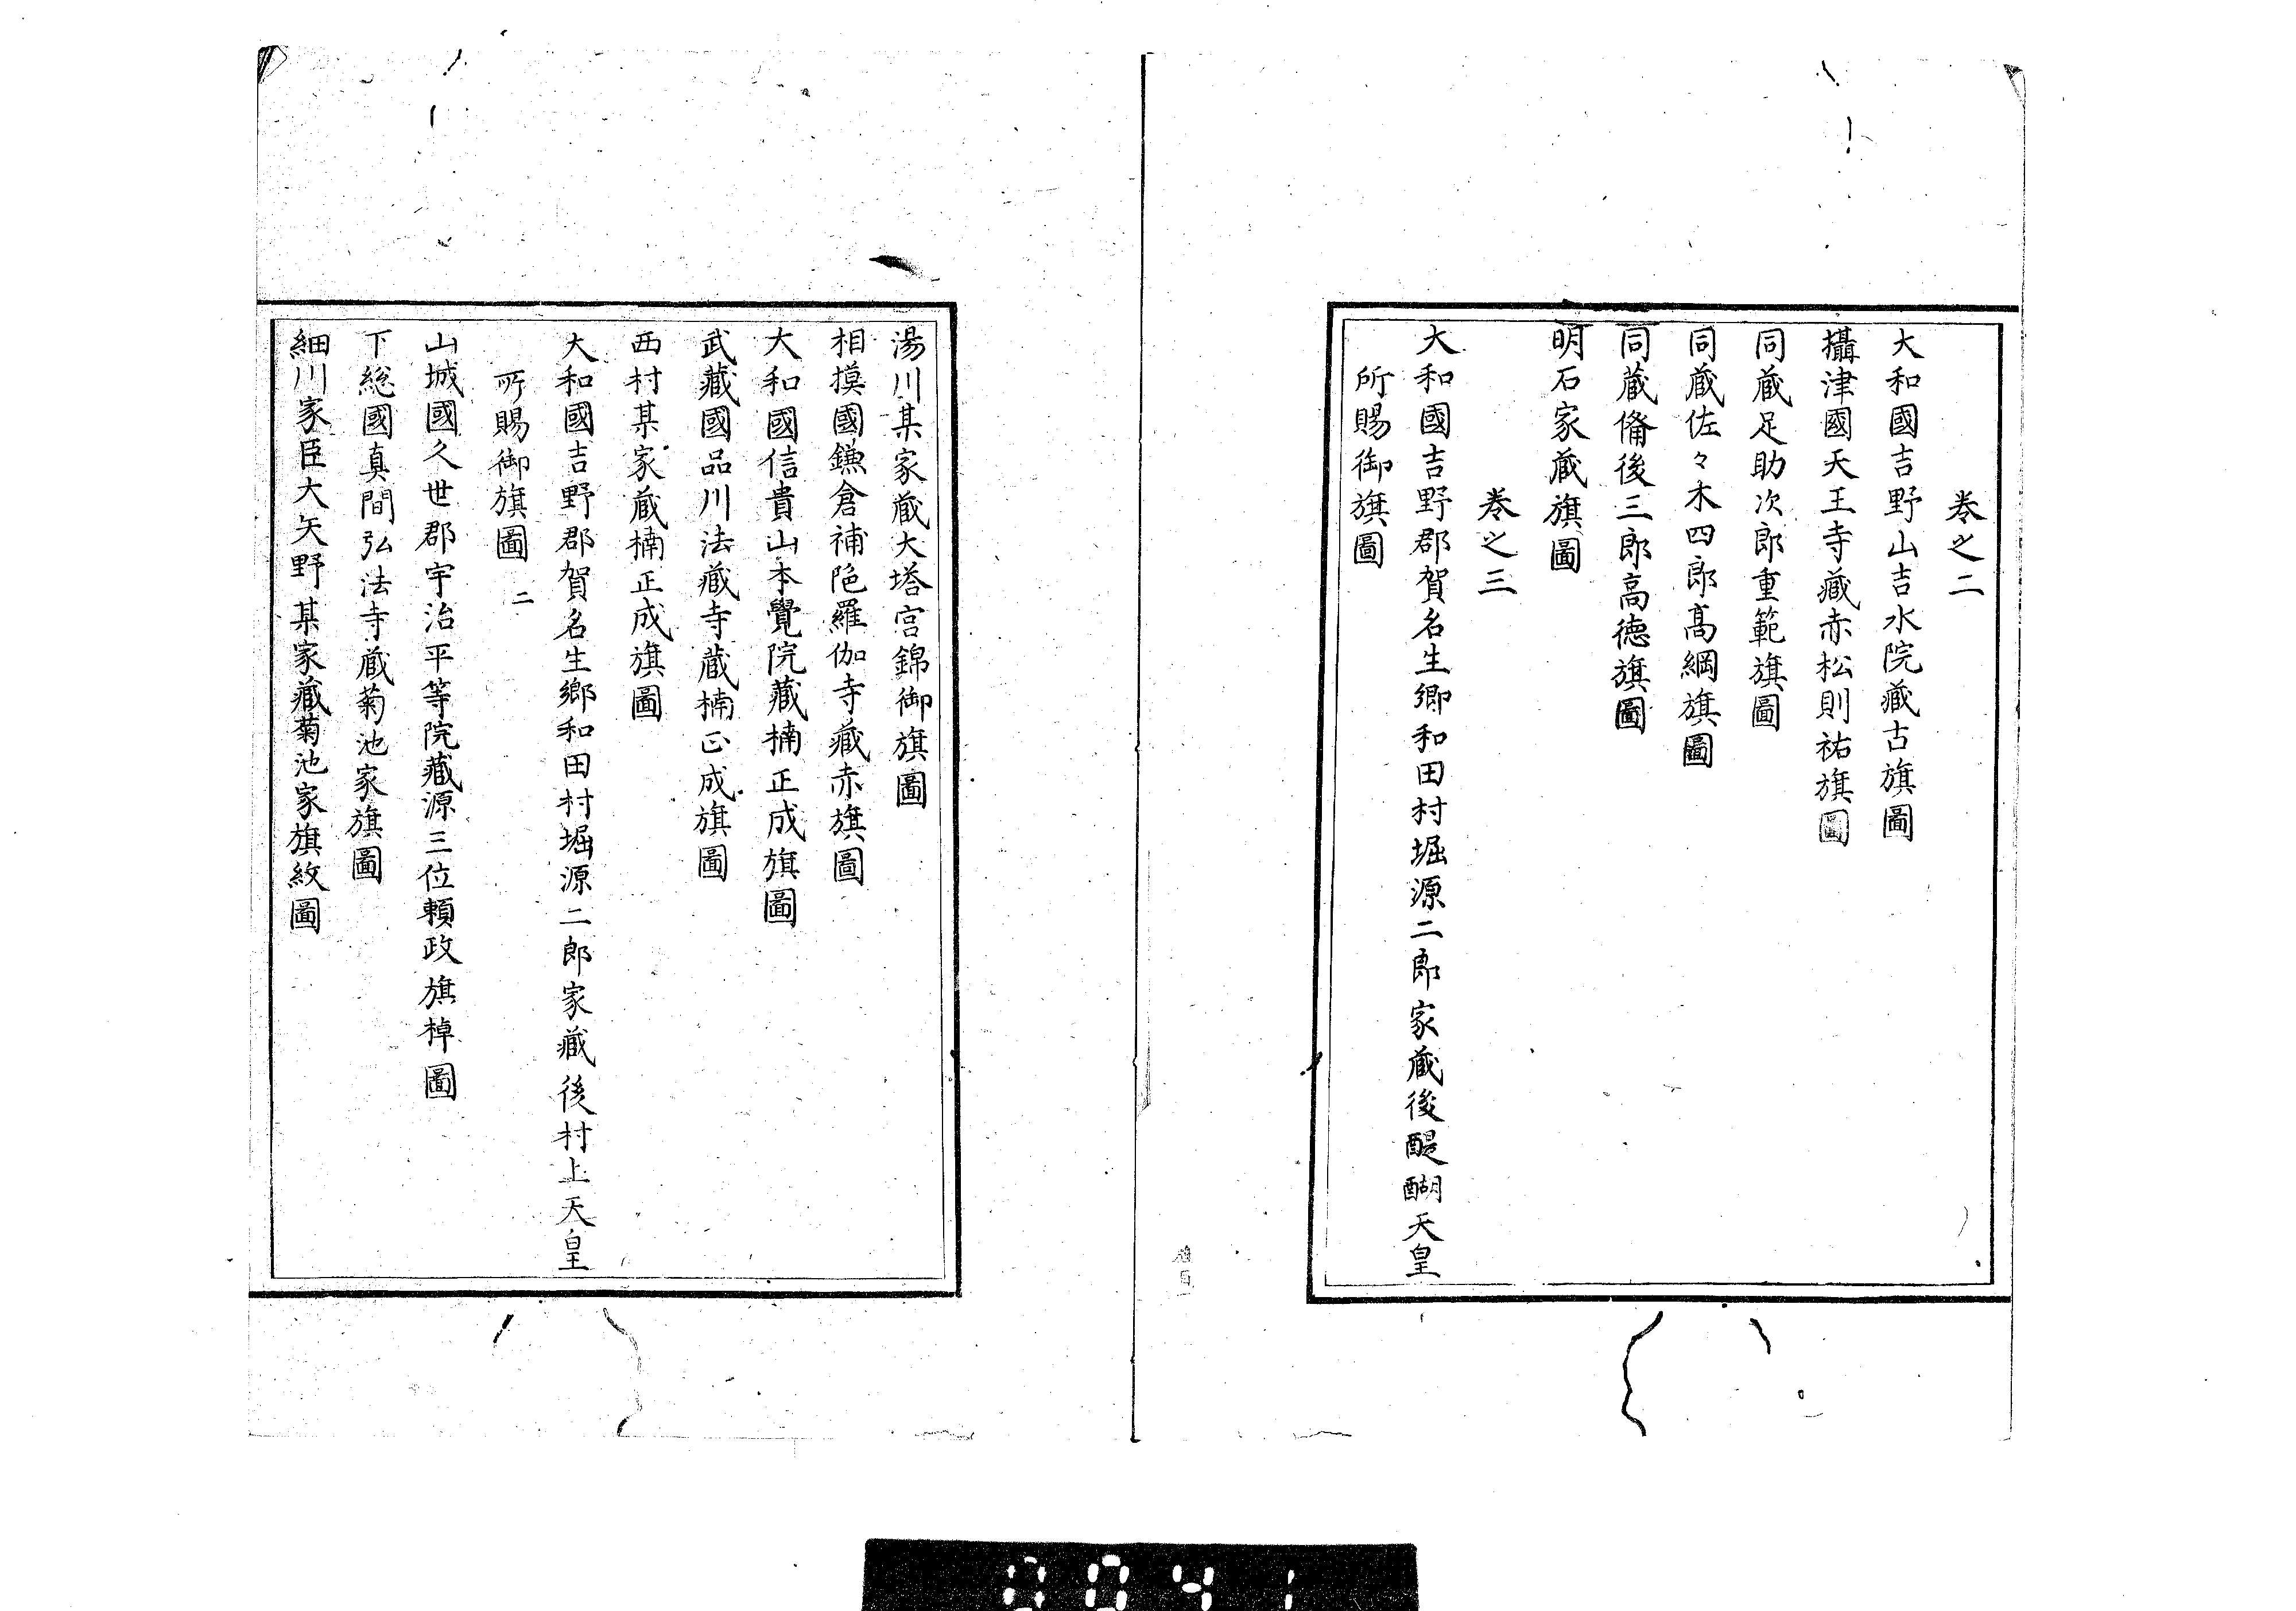 巻之二
大和國吉野山吉水院藏古旗圖
攝津國天王寺藏赤松則祐旗圖
同蔵足助次郎重範旗圖
同蔵佐々木四郎髙綱旗圖
同蔵備後三郎高徳旗圖
明石家蔵旗圖
巻之三
大和國吉野郡賀名生郷和田村堀源二郎家蔵後醍醐天皇
所賜御旗圖
湯川某家蔵大塔宮錦御旗圖
相摸國鎌倉補陁羅伽寺藏赤旗圖
大和國信貴山本覺院藏楠正成旗圖
武藏國品川法藏寺蔵楠正成旗圖
西村某家蔵楠正成旗圖
大和國吉野郡賀名生郷和田村堀源二郎家藏後村上天皇
所賜御旗圖 二
山城國久世郡宇治平等院藏源三位頼政旗棹圖
下総國真間弘法寺蔵菊池家旗圖
細川家臣大矢野某家藏菊池家旗紋圖
0041